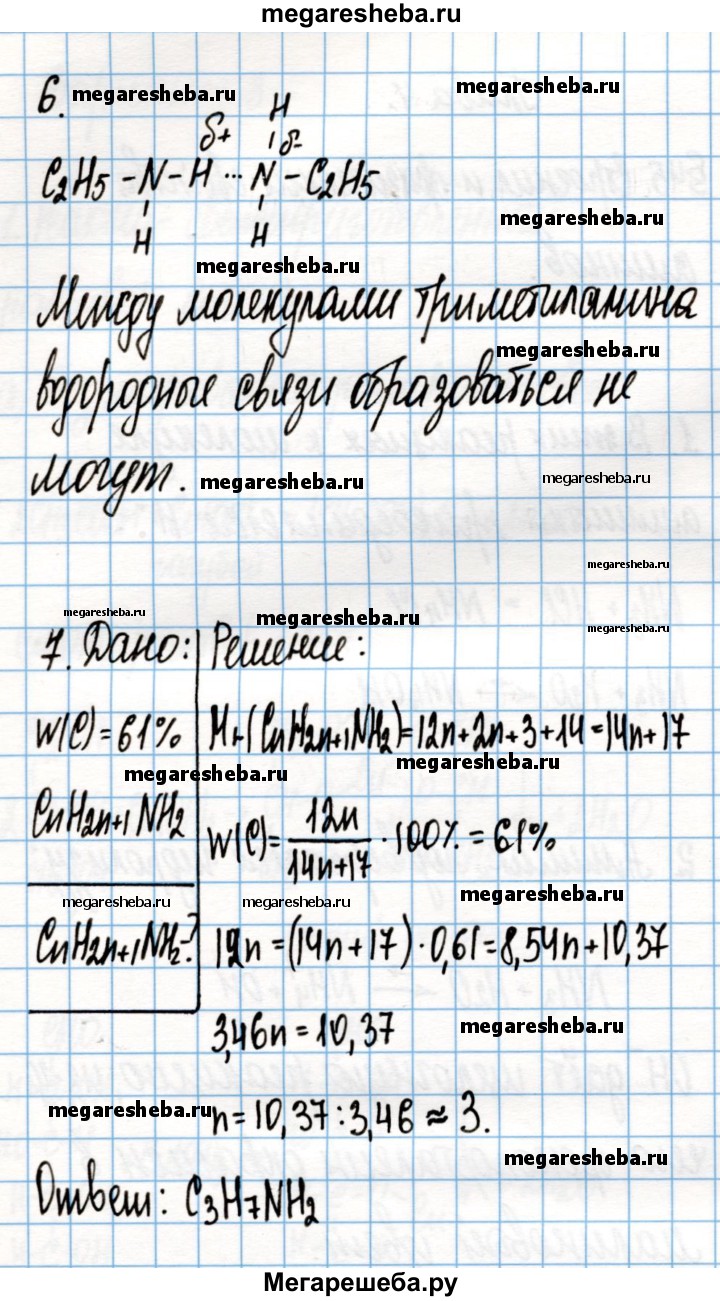 megaresheba.ru
6. megaresheba.ru megaresheba.ru
H
δ+ δ-
C2H5 - N - H ... N - C2H5.
H H
megaresheba.ru
megaresheba.ru
Между молекулами триметиламина
megaresheba.ru
водородные связи образоваться не
могут. megaresheba.ru megaresheba.ru
megaresheba.ru
megaresheba.ru megaresheba.ru megaresheba.ru
7. Дано: Решение:
W(C)=61% Mr(CnH2n+1NH2)=12n+2n+3+14=14n+17
megaresheba.ru megaresheba.ru
CnH2n+1NH2
W(C)=12n/14n+17·100%=61%
megaresheba.ru
megaresheba.ru megaresheba.ru
CnH2n+1NH2-? 12n=(14n+17)·0,61=8,54n+10,37
3,46n=10,37 megaresheba.ru
megaresheba.ru n=10,37:3,46≈3.
megaresheba.ru
Ответ: C3H7NH2
Мегарешеба.ру